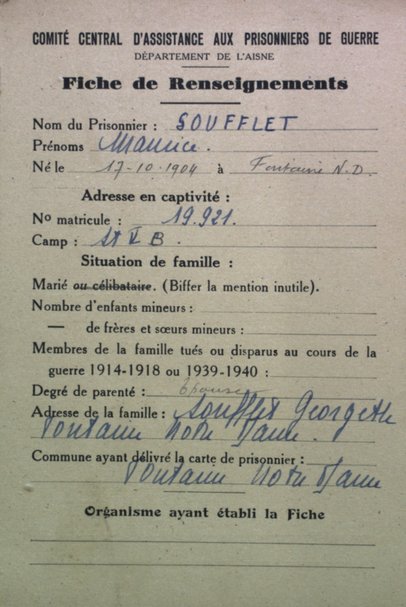 COMITÉ CENTRAL D'ASSISTANCE AUX PRISONNIERS DE GUERRE
DÉPARTEMENT DE L'AISNE
Fiche de Renseignements
Nom du Prisonnier : SOUFFLET
Prénoms Maurice.
Né le 17-10-1904 à Fontaine N.D.
Adresse en captivité :
No matricule : 19.921.
Camp : St V B.
Situation de famille :
Marié ou célibataire. (Biffer la mention inutile).
Nombre d'enfants mineurs :
— de frères et sœurs mineurs :
Membres de la famille tués ou disparus au cours de la
guerre 1914-1918 ou 1939-1940 :
Degré de parenté : Epouse
Adresse de la famille : Soufflet Georgette
Fontaine Notre Dame.
Commune ayant délivré la carte de prisonnier :
Fontaine Notre Dame
Organisme ayant établi la Fiche